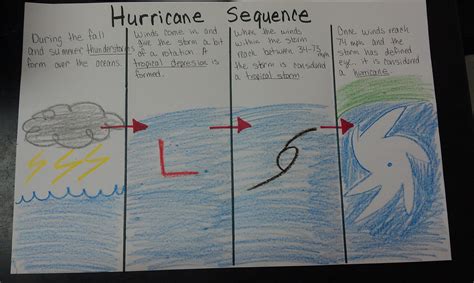 Hurricane Sequence
During the fall
and summer thunderstorms
form over the oceans.
Winds come in and
give the storm a bit
of a rotation. A
tropical depression is
formed.
When the winds
within the storm
reach between 34-73
mph
the storm is considered
a tropical storm
Once winds reach
74 mph and the
storm has defined
eye, it is considered
a hurricane.
L